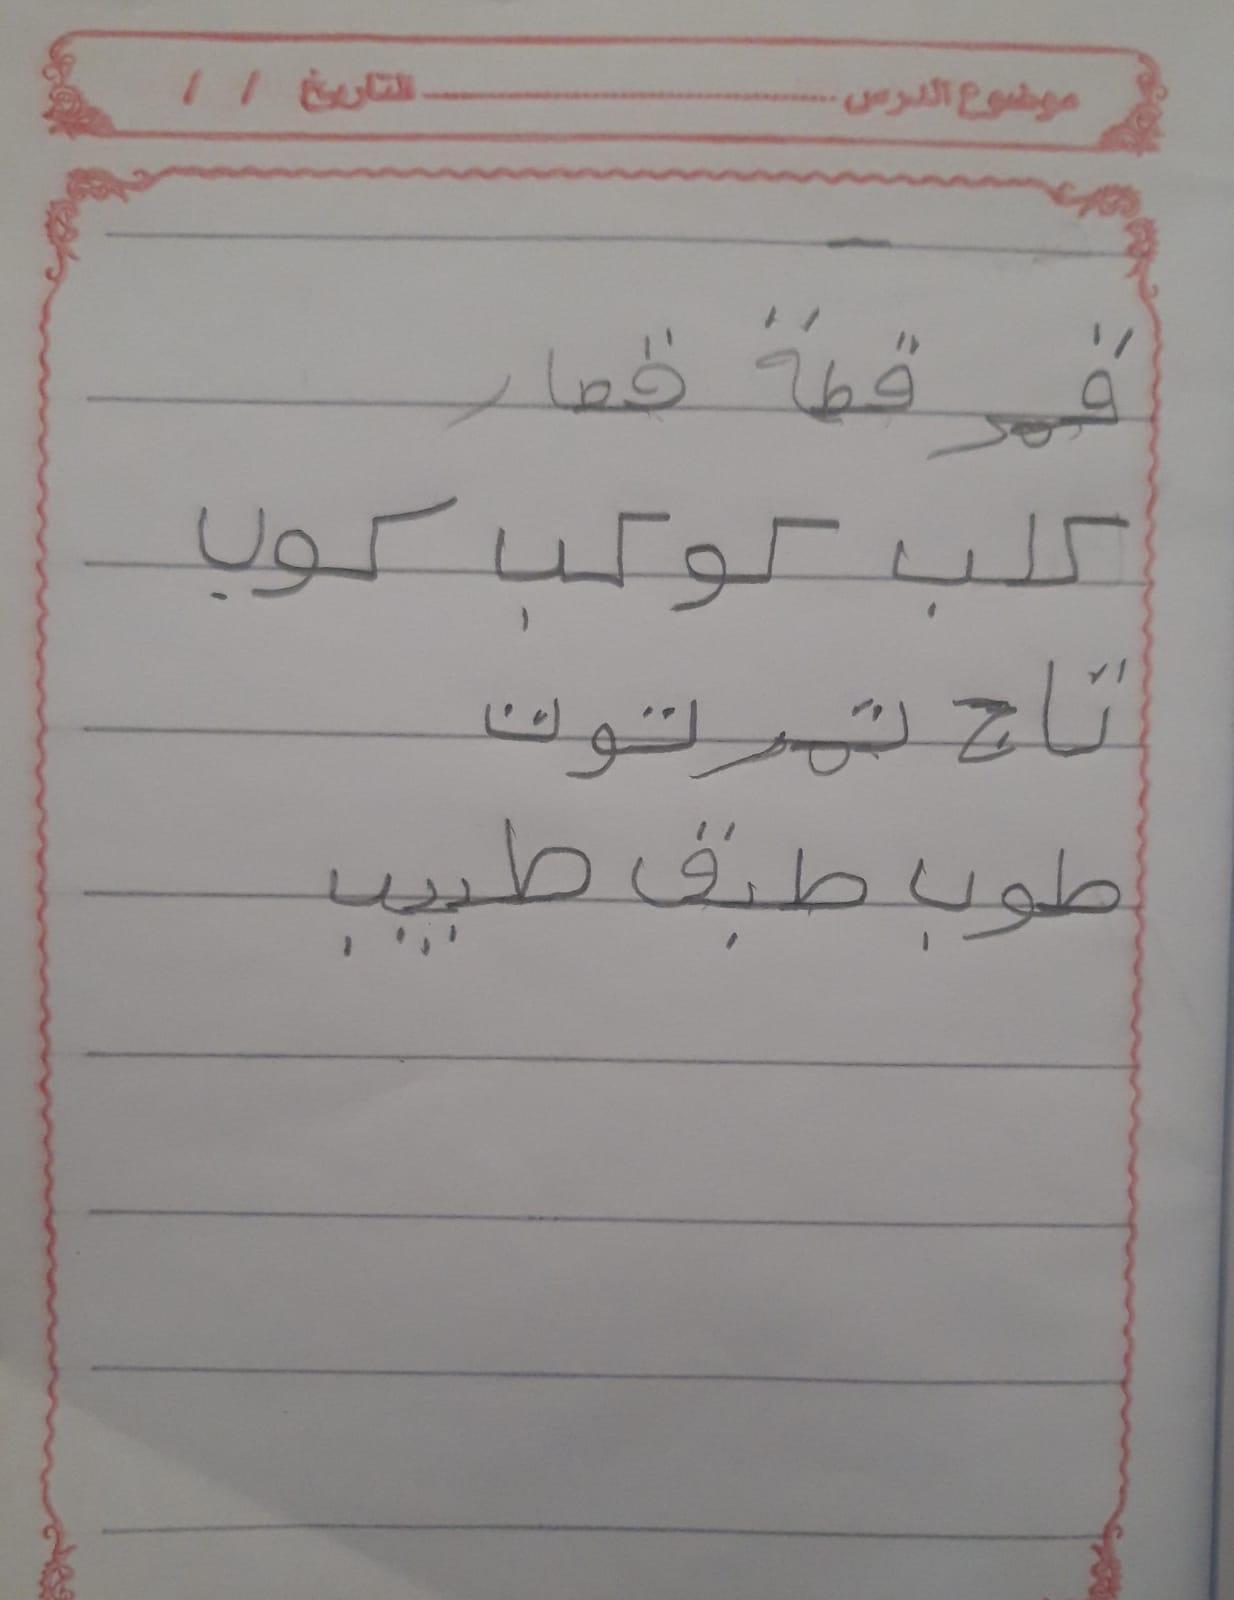 موضوع الدرس ............ التاريخ / /
قمر قطة قصار
كلب كوكب كوب
تاج تمر توت
طوب طبق طبيب